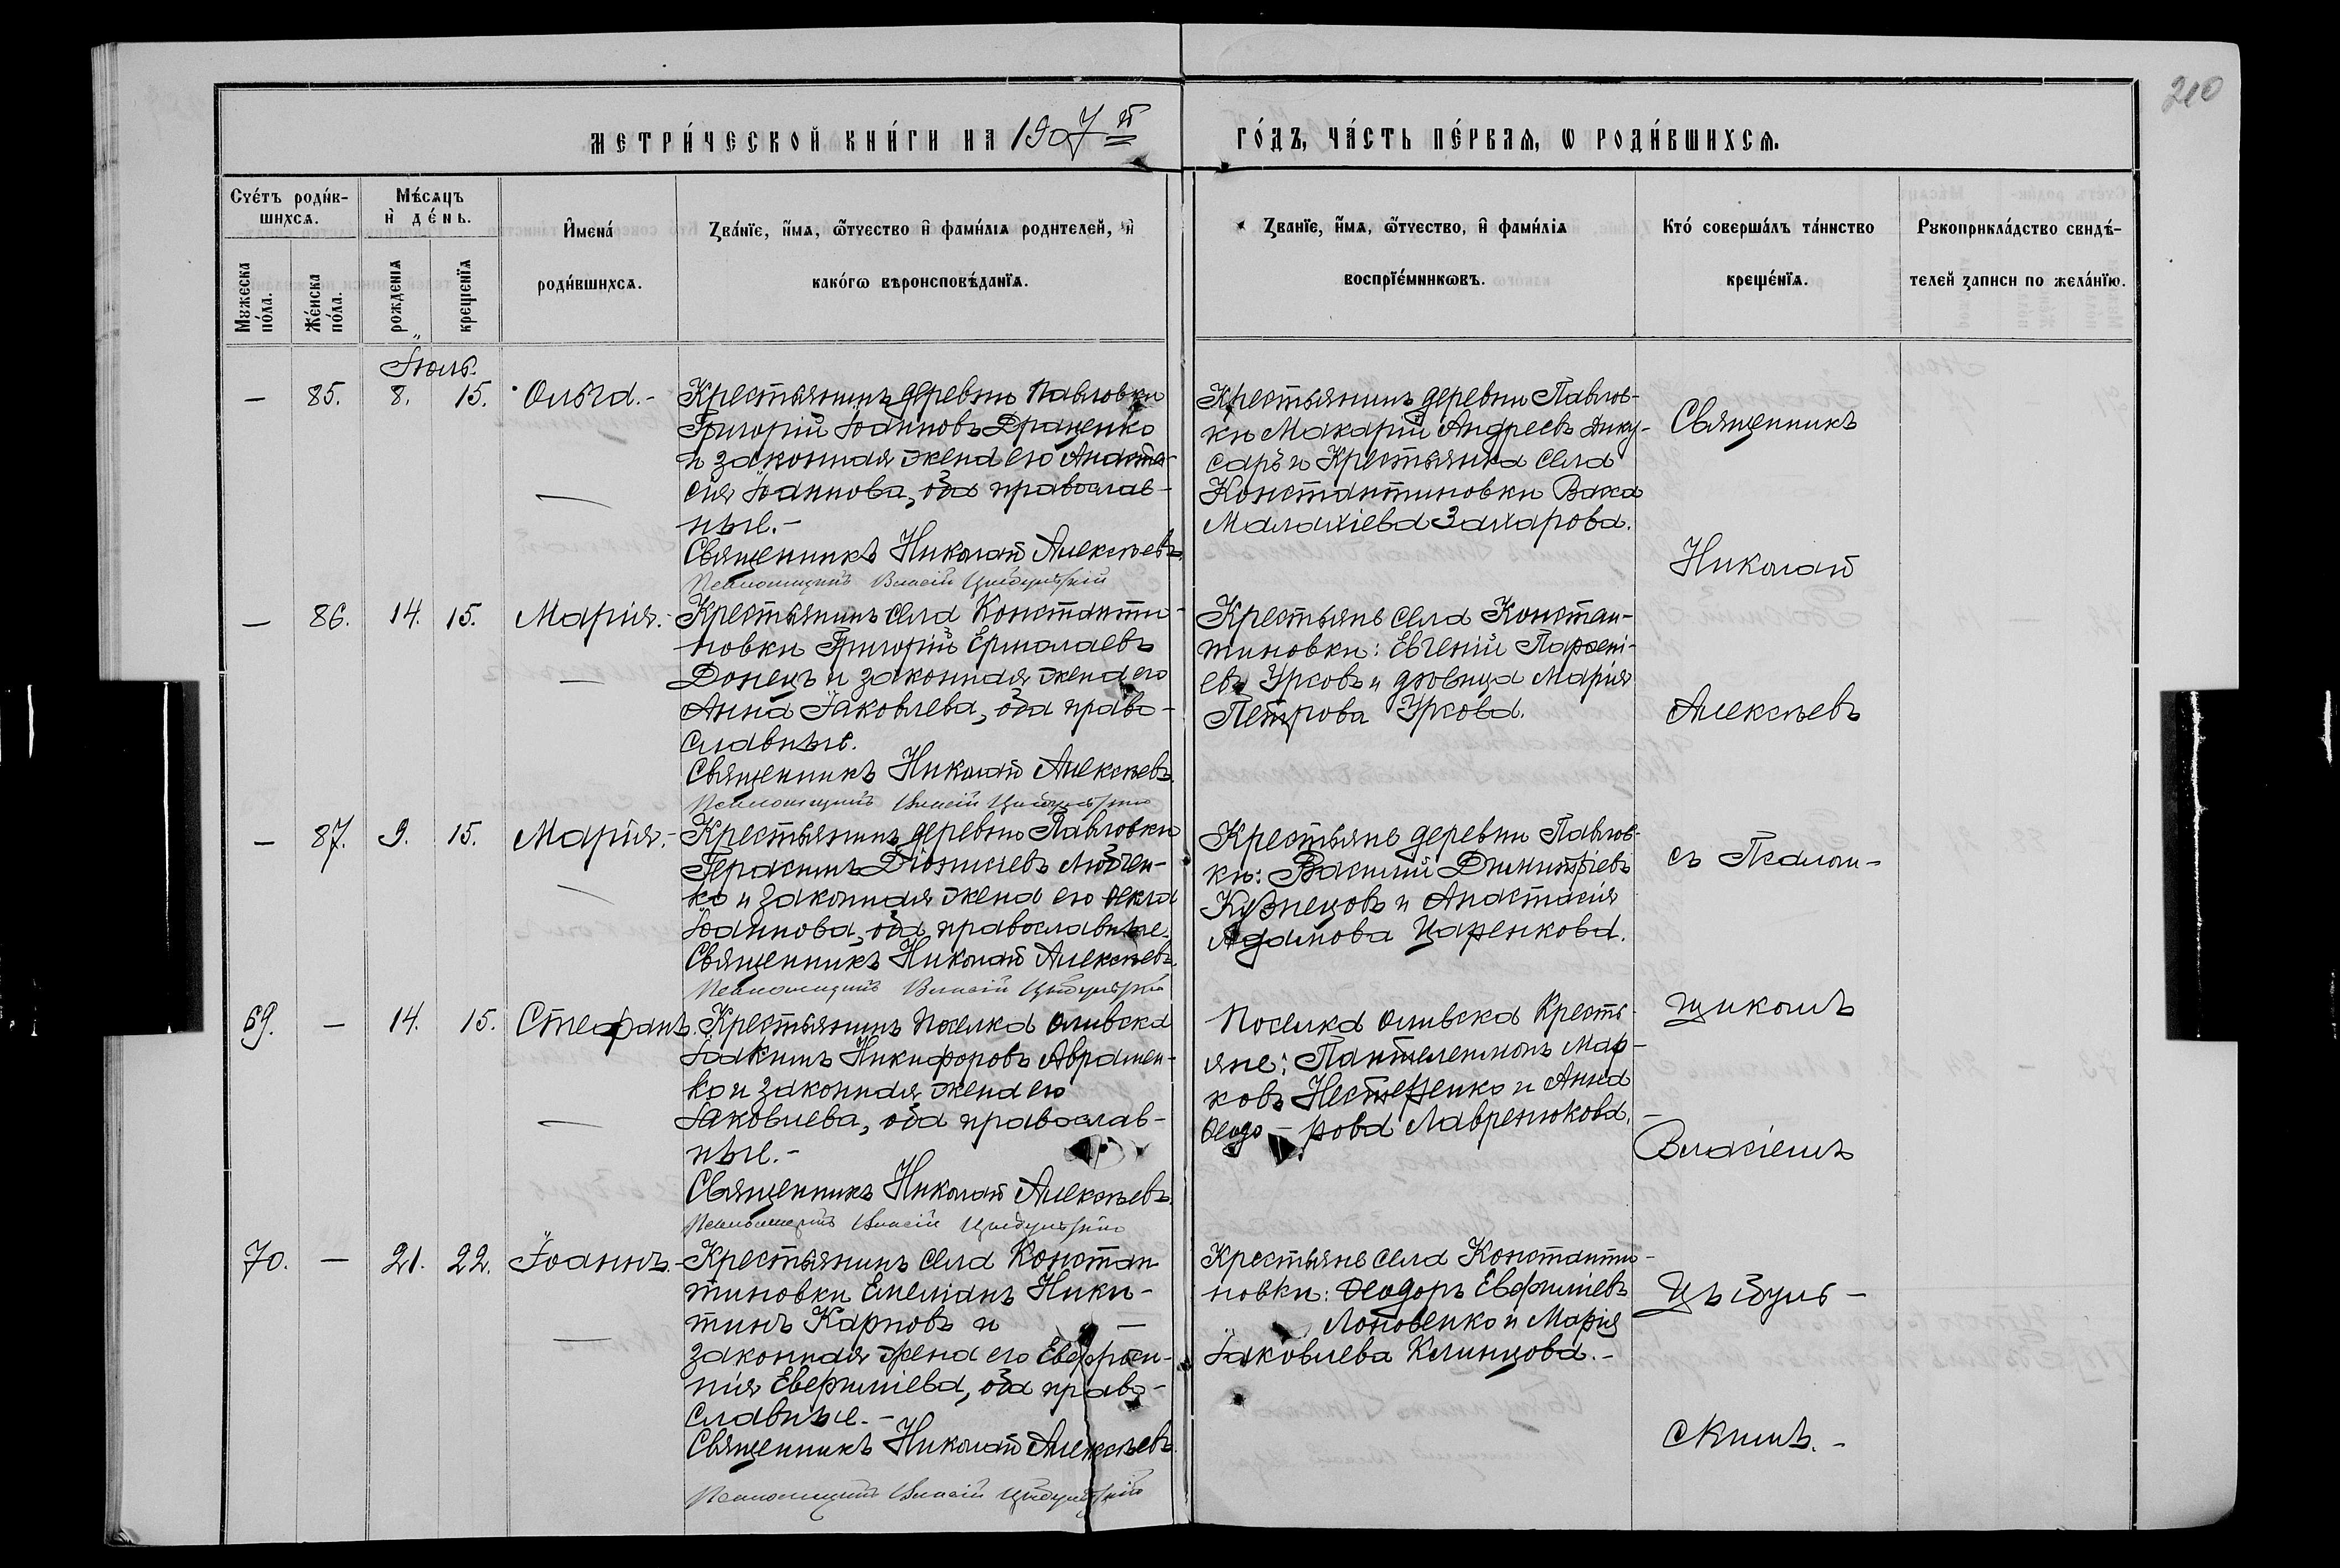 210
МЕТРИ́ЧЕСКОЙ КНИ́ГИ НА 1907й
ГО́ДЪ, ЧА́СТЬ ПЕ́РВАѦ, Ѡ РОДИ́ВШИХСѦ.
Сче́тъ роди́в-
шихсѧ.
Мꙋжеска
по́ла.
Же́нска
по́ла.
Мѣ́сѧцъ
и҆ де́нь.
рожденїѧ
крещенїѧ
И҆мена́
роди́вшихсѧ.
Зва́нїе, и҆́мѧ, ѻ҆́тчество и҆ фами́лїѧ родителей, и҆
како́гѡ вѣроисповѣ́данїѧ.
Званїе, и҆́мѧ, ѻ҆́тчество, и҆ фами́лїѧ
воспрїе́мниковъ.
Кто́ соверша́лъ та́инство
креще́нїѧ.
Рꙋкоприкла́дство свидѣ́-
телей записи по жела́нїю.
Іюль.
— 85. 8. 15. Ольга.-
Крестьянинъ деревни Павловки
Григорій Іоанновъ Драценко
и законная жена его Анаста-
сія Іоаннова, оба православ-
ные.-
Священникъ Николай Алексѣевъ.
Псаломщикъ Власій Цыбульскій
Крестьянинъ деревни Павлов-
ки Макарій Андреевъ Дику-
саръ и Крестьянка села
Константиновки Васса
Малахіева Захарова.
— 86. 14. 15. Марія.-
Крестьянинъ села Константи-
новки Григорій Ермолаевъ
Донецъ и законная жена его
Анна Іаковлева, оба право-
славные.
Священникъ Николай Алексѣевъ.
Псаломщикъ Власій Цыбульскій
Крестьяне села Констан-
тиновки: Евгеній
Урсовъ и вдовица Марія
Петрова Урсова.
— 87. 9. 15. Марія.-
Крестьянинъ деревни Павловки
Герасимъ Діонисіевъ Любчен-
ко и законная жена его Ѳекла
Іоаннова, оба православные.
Священникъ Николай Алексѣевъ.
Псаломщикъ Власій Цыбульскій
Крестьяне деревни Павлов-
ки: Василій Димитріевъ
Кузнецовъ и Анастасія
Адамова Царенкова.
69. — 14. 15. Стефанъ.
Крестьянинъ поселка Оливска
Іоакимъ Никифоровъ Авраамен-
ко и законная жена его
Іаковлева, оба православ-
ные.-
Священникъ Николай Алексѣевъ.
Псаломщикъ Власій Цыбульскій
Поселка Оливска Кресть-
яне: Пантелеимонъ Мар-
ковъ Нестеренко и Анна
Ѳеодо-рова Лавренюкова.
70. — 21. 22. Іоаннъ.-
Крестьянинъ села Констан-
тиновки Емеліанъ Ники-
тинъ Карповъ и —
законная жена его Евфроси-
нія Евфиміева, оба право-
славные.-
Священникъ Николай Алексѣевъ.
Псаломщикъ Власій Цыбульскій
Крестьяне села Константи-
новки: Ѳеодоръ Евфиміевъ
Лоповенко и Марія
Іаковлева Клинцова.-
Священникъ
Николай
Алексѣевъ
съ Псалом-
щикомъ
Власіемъ
Цыбуль-
скимъ.-